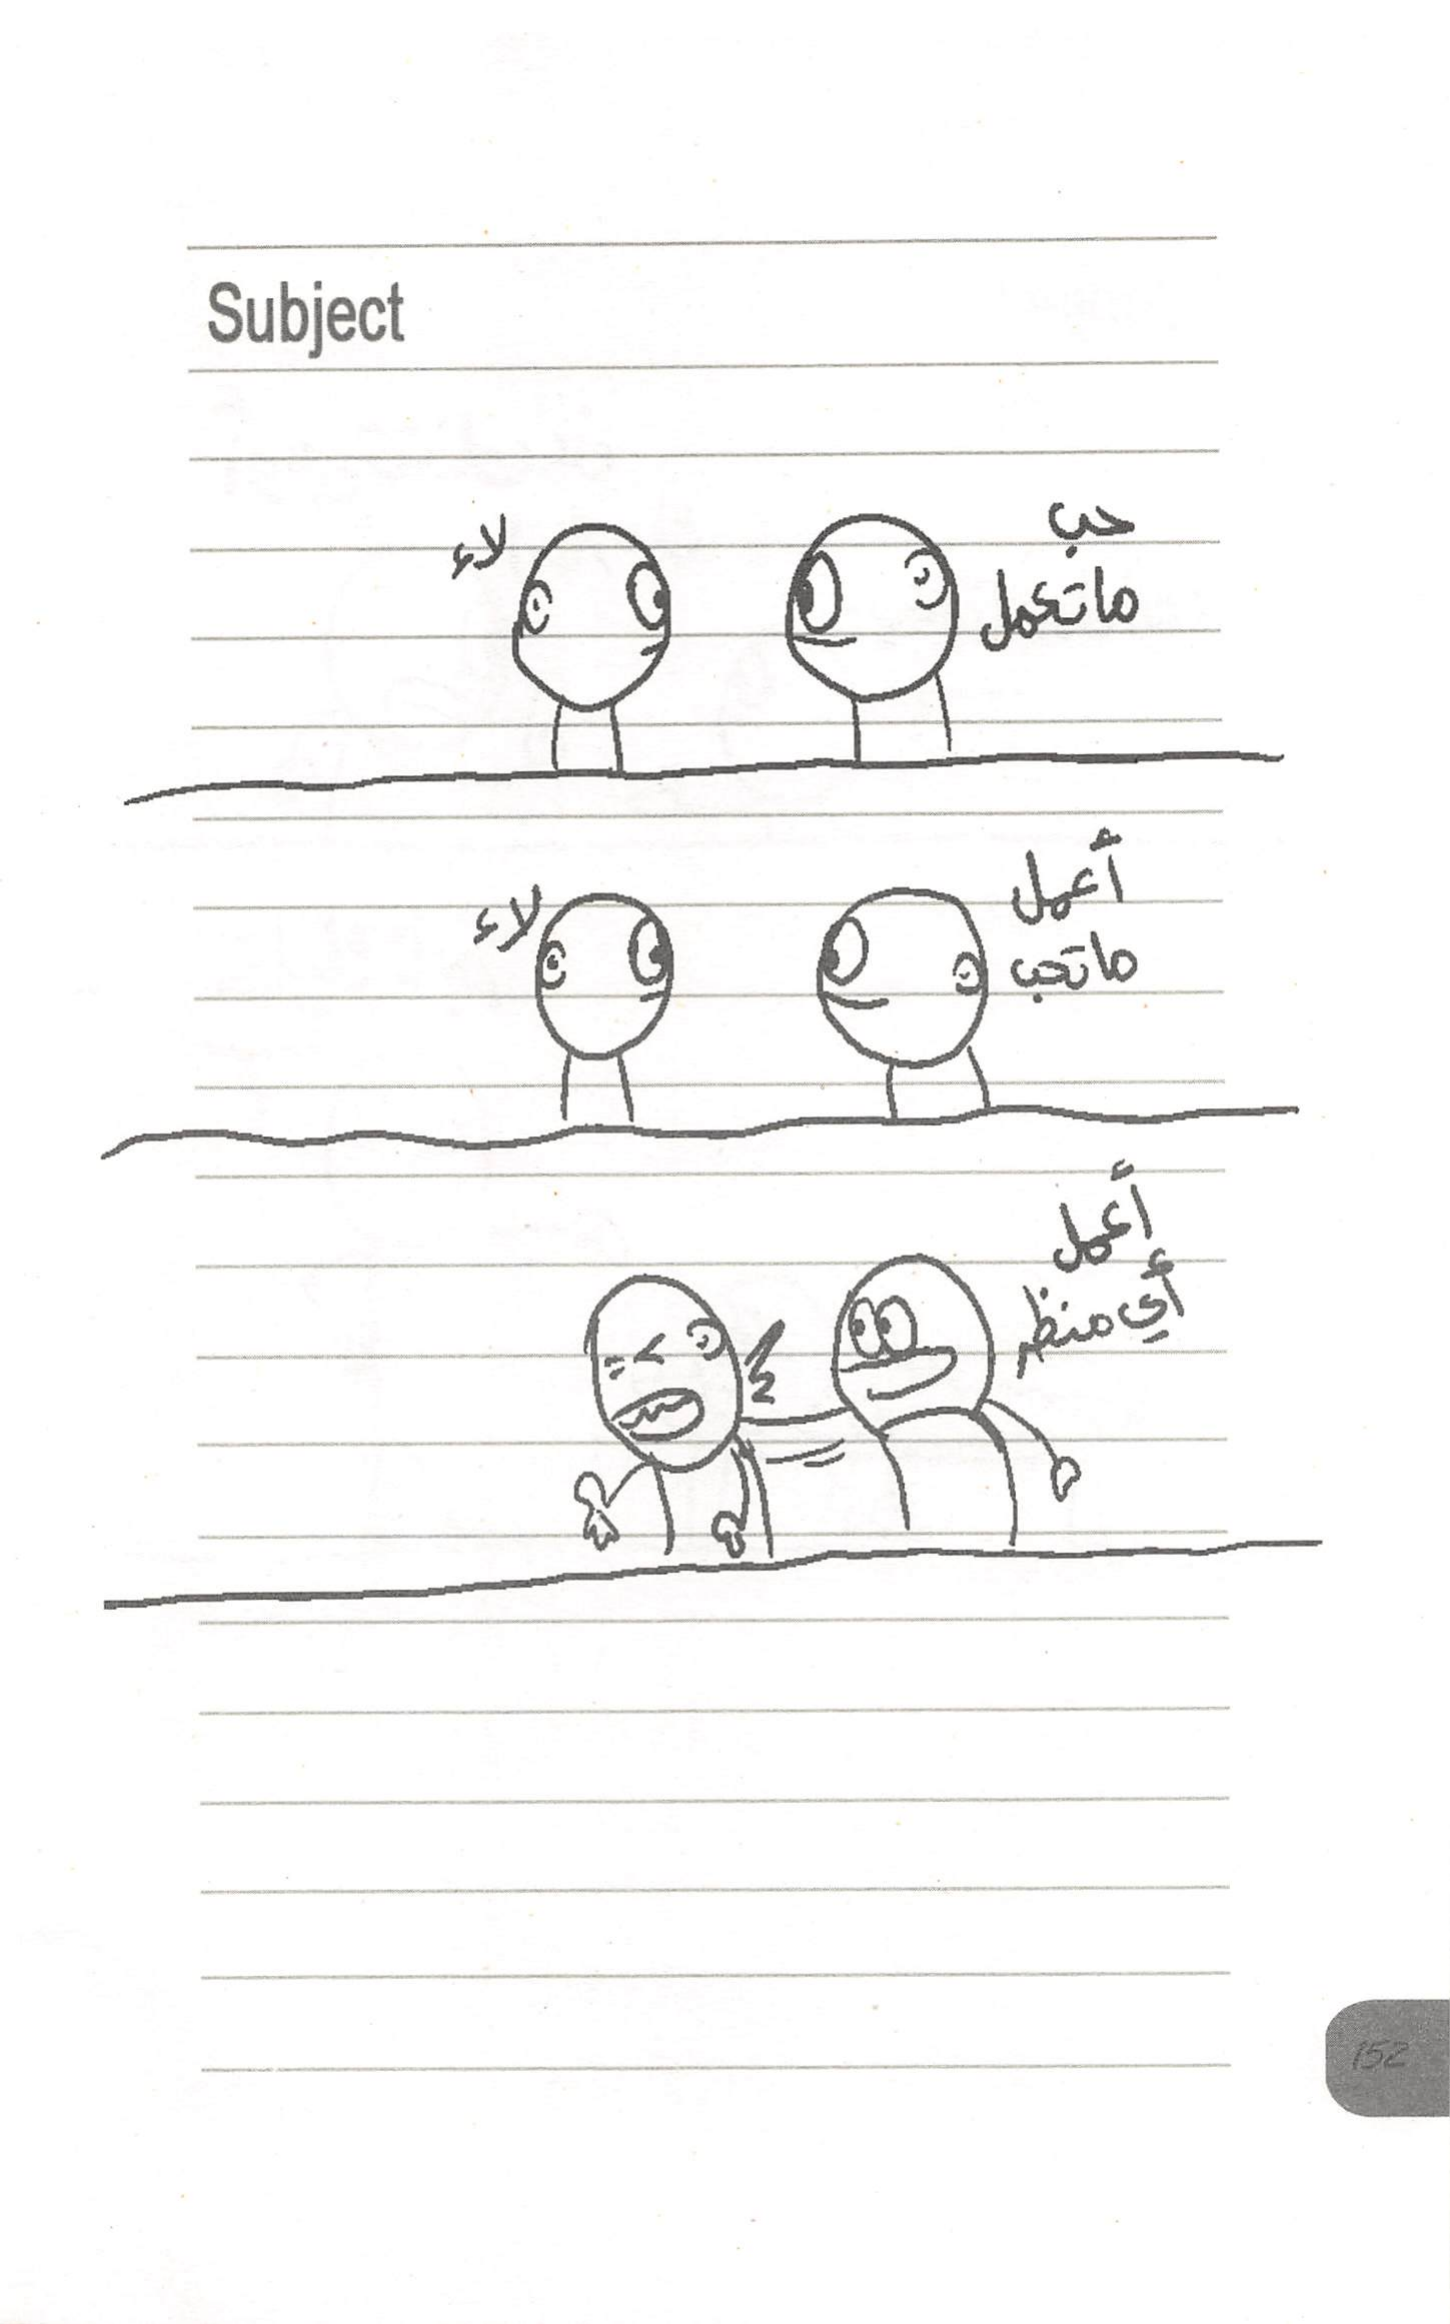 Subject
حب
ما تعمل
لاء
أعمل
ما تحب
لاء
أعمل
أي منظر
152